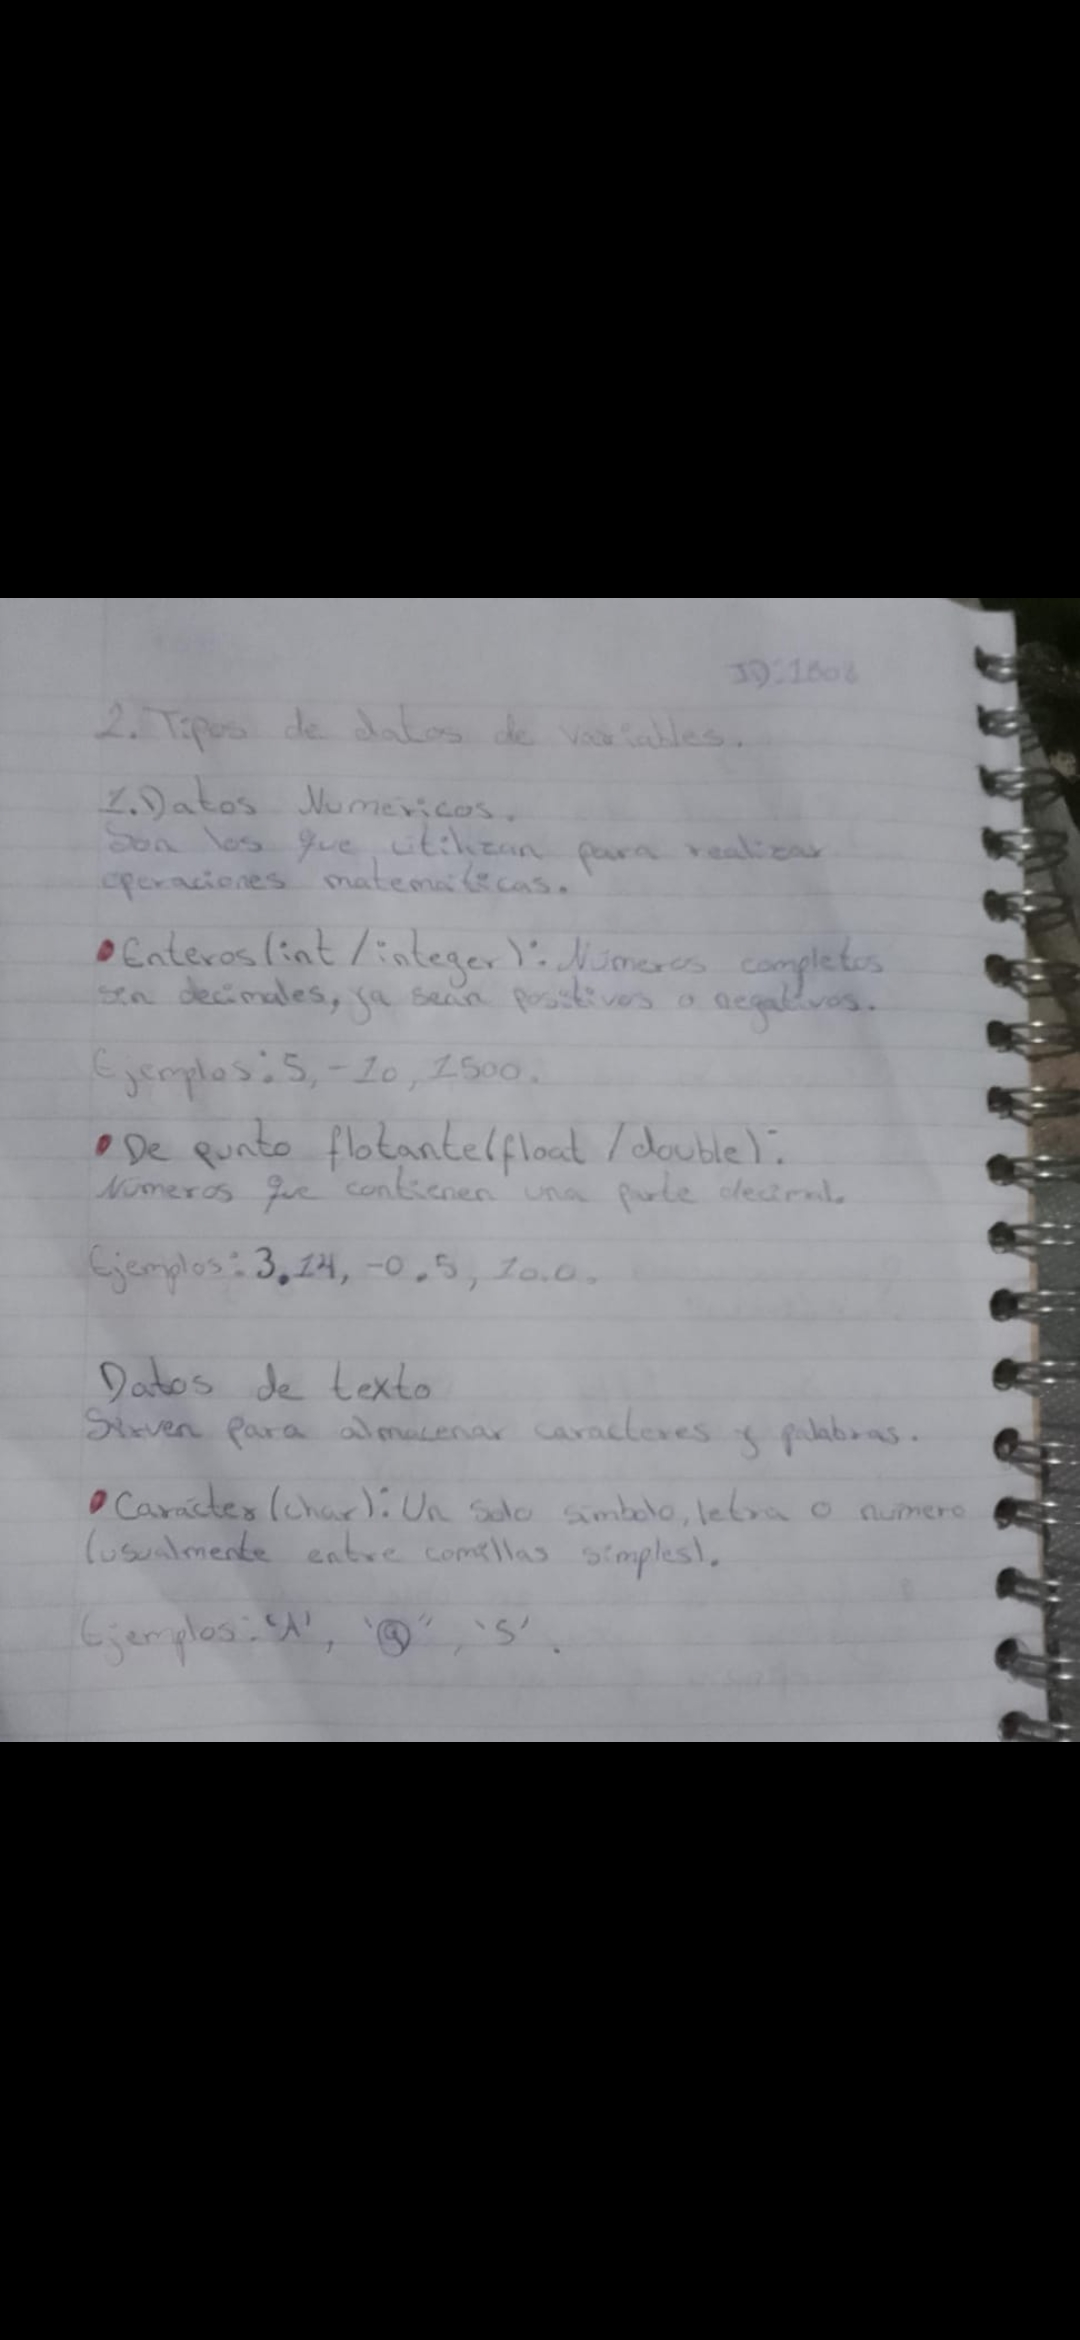 ID:1808
2. Tipos de datos de variables.
1. Datos Numéricos.
Son los que utilizan para realizar
operaciones matemáticas.
•Enteros(int/integer): Números completos
sin decimales, ya sean positivos o negativos.
Ejemplos: 5, -10, 1500.
•De punto flotante(float/double):
Números que contienen una parte decimal.
Ejemplos: 3.14, -0.5, 10.0.
Datos de texto
Sirven para almacenar caracteres y palabras.
•Carácter(char): Un solo símbolo, letra o número
(usualmente entre comillas simples).
Ejemplos: 'A', '@'', '5'.